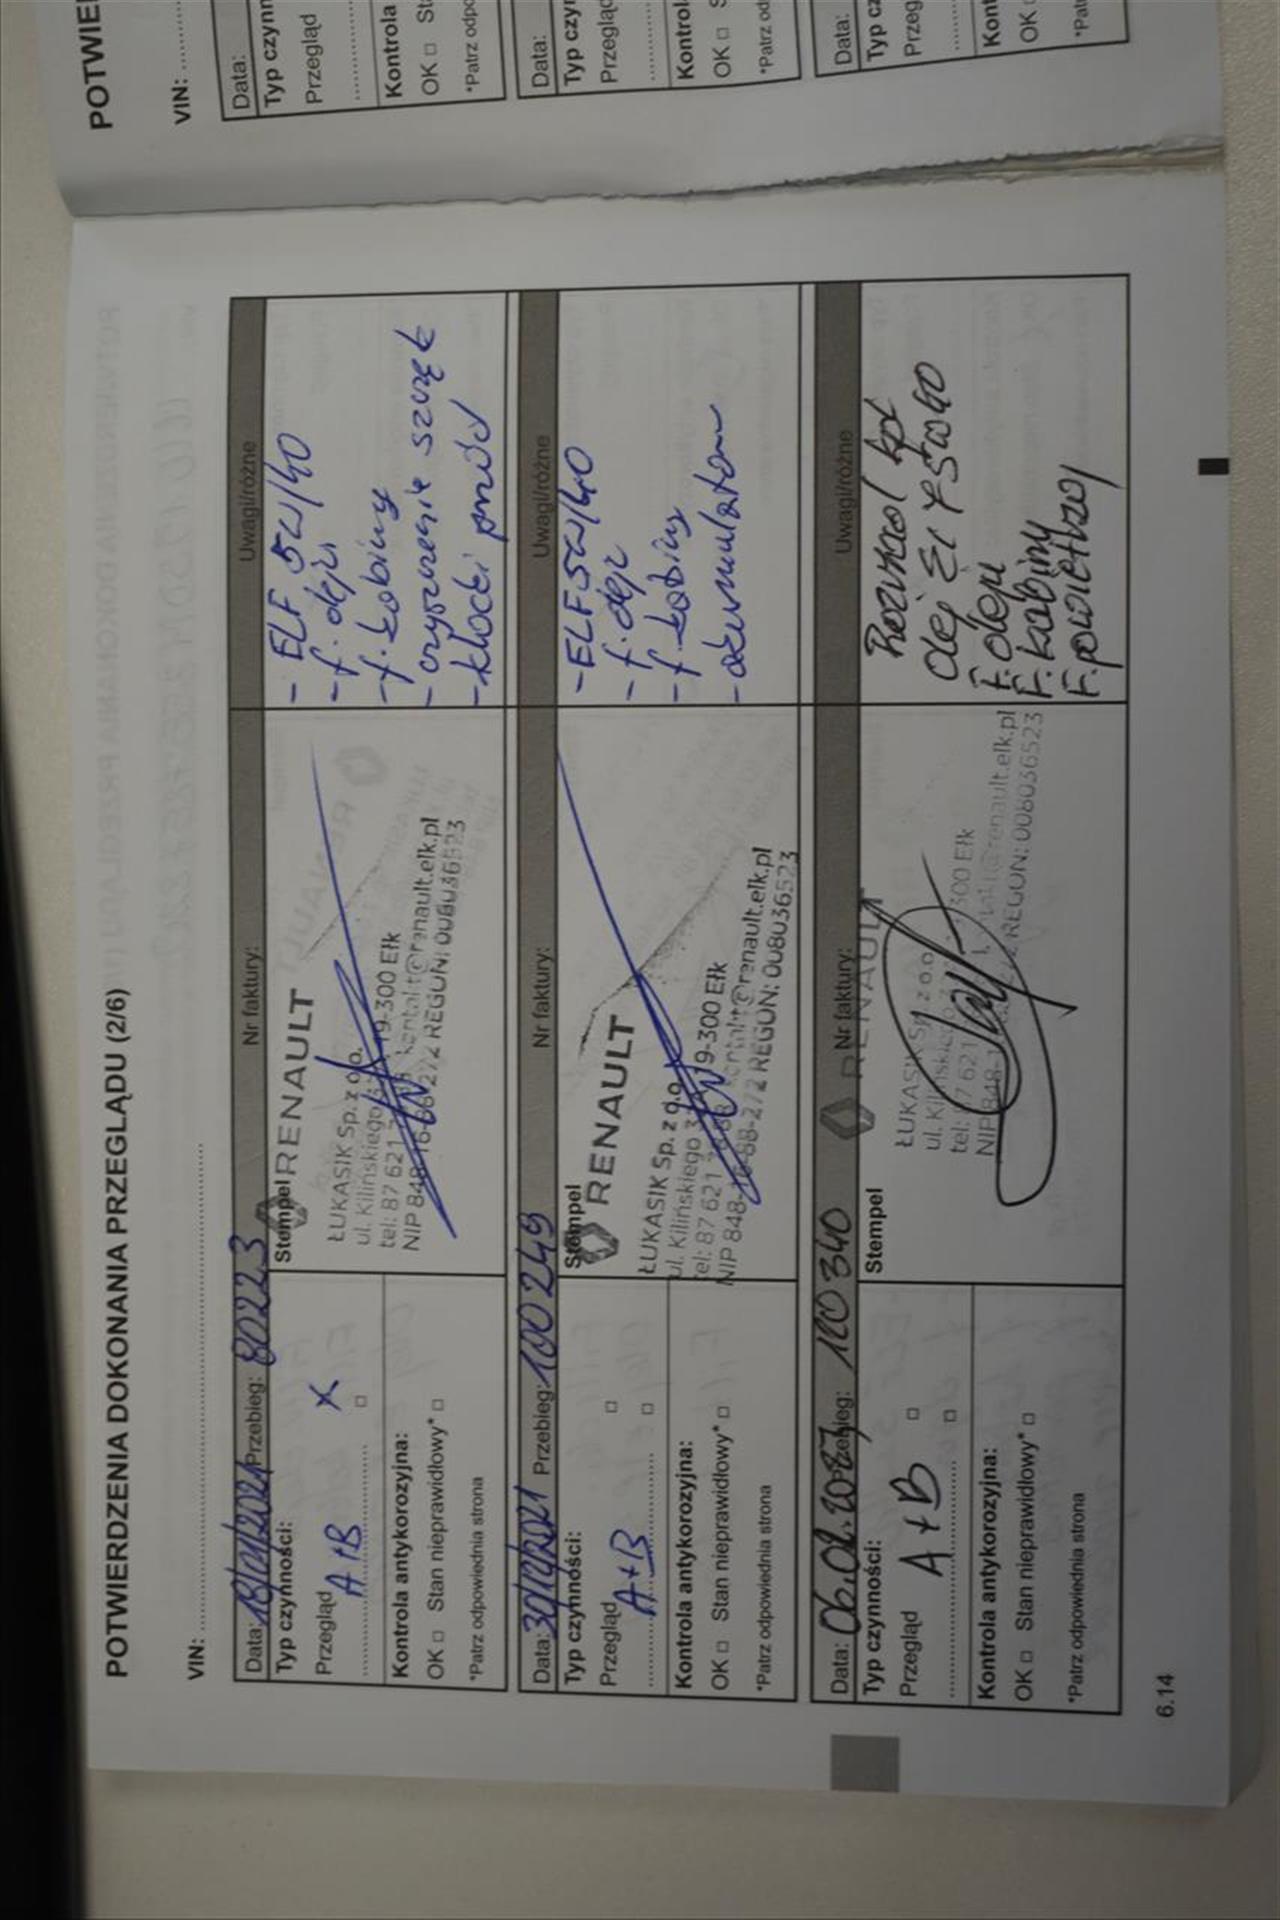 POTWIERDZENIA DOKONANIA PRZEGLĄDU (2/6)
VIN:
Data: 18/01/2021 Przebieg: 80223 Nr faktury: Uwagi/różne
Typ czynności:
Przegląd X
A+B
Kontrola antykorozyjna:
OK □ Stan nieprawidłowy* □
*Patrz odpowiednia strona
Stempel
RENAULT
ŁUKASIK Sp. z o.o.
ul. Kilińskiego 19-300 Ełk
tel: 87 621 kontakt@renault.elk.pl
NIP 848-16-88-272 REGON: 008036523
- ELF 5W/40
- f. oleju
- f. kabiny
- czyszczenie szczęk
- klocki przód
Data: 30/12/2021 Przebieg: 100249 Nr faktury: Uwagi/różne
Typ czynności:
Przegląd □
A+B □
Kontrola antykorozyjna:
OK □ Stan nieprawidłowy* □
*Patrz odpowiednia strona
Stempel
RENAULT
ŁUKASIK Sp. z o.o.
ul. Kilińskiego 19-300 Ełk
tel: 87 621 kontakt@renault.elk.pl
NIP 848-16-88-272 REGON: 008036523
- ELF 5W/40
- f. oleju
- f. kabiny
- akumulator
Data: Przebieg: Nr faktury: Uwagi/różne
Typ czynności:
Przegląd □
A+B □
Kontrola antykorozyjna:
OK □ Stan nieprawidłowy* □
*Patrz odpowiednia strona
Stempel
RENAULT
ŁUKASIK Sp. z o.o.
ul. Kilińskiego 300 Ełk
tel: 87 621 renault.elk.pl
NIP 848-1 REGON: 008036523
Rozrząd kpl
olej 5W40
F. oleju
F. kabiny
F. powietrza
6.14
POTWIE
VIN:
Data:
Typ czynn
Przegląd
Kontrola
OK □
*Patrz odpo
Data:
Typ czy
Przegl
Kontrol
OK □ S
*Patrz od
Data:
Typ cz
Przeg
Kont
OK □
*Pat